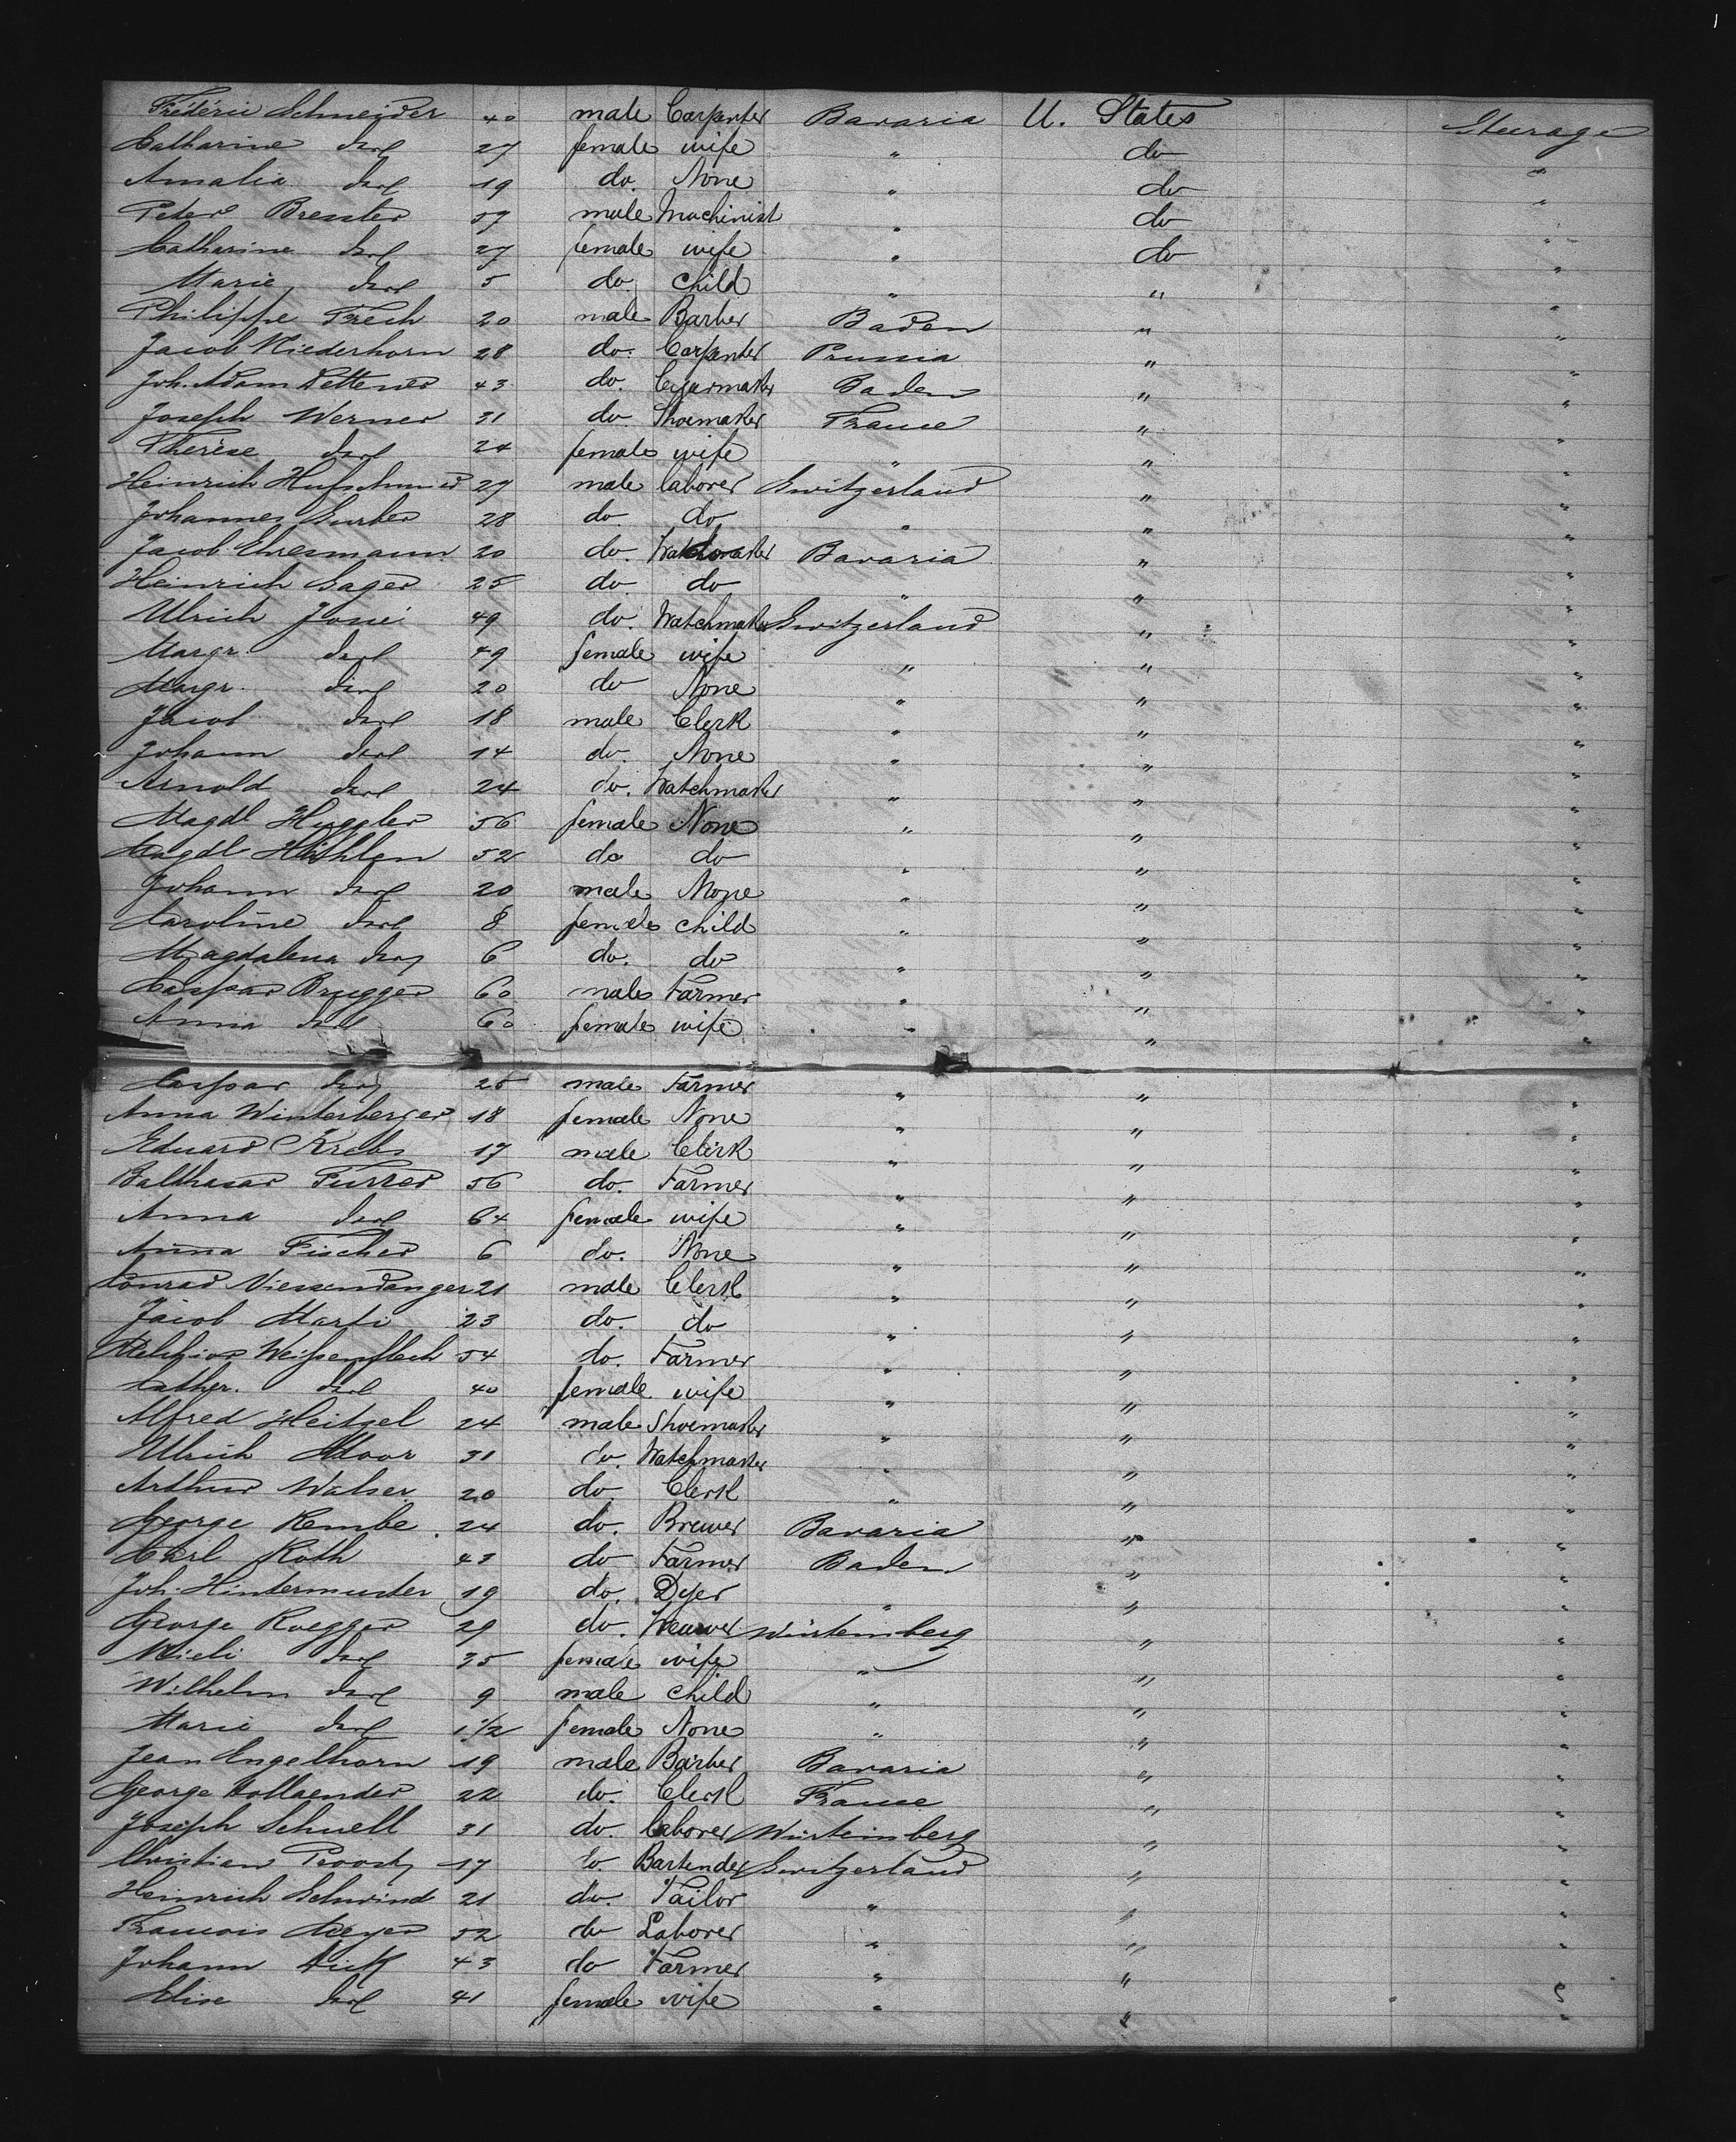 Frédéric Schneider 40 male Carpenter Bavaria U. States Steerage
Catharine do 27 female wife " do "
Amalia do 19 do. None " do "
Peter Bressler 59 male Machinist " do "
Catharine do 27 female wife " do "
Marie do 5 do. child " " "
Philippe Frech 20 male Barber Baden " "
Jacob Niederhorn 28 do. Carpenter Prussia " "
Joh. Adam Dettener 43 do. Cigarmaker Baden " "
Joseph Werner 31 do. Shoemaker France " "
Therèse do 24 female wife " " "
Heinrich Hufschmied 27 male laborer Switzerland " "
Johannes Surber 28 do do " " "
Jacob Ehresmann 20 do. Bavaria " "
Heinrich Sager 25 do. do " " "
Ulrich 49 do. Watchmaker Switzerland " "
Margr. do 49 female wife " " "
Margr. do 20 do None " " "
Jacob do 18 male Clerk " " "
Johann do 14 do. None " " "
Arnold do 24 do. Watchmaker " " "
Magdl Huggler 56 female None " " "
Magdl 52 do do " " "
Johann do 20 male None " " "
Caroline do 8 female child " " "
Magdalena do 6 do. do " " "
Caspar Brugger 60 male Farmer " " "
Anna do 60 female wife " " "
Caspar do 25 male Farmer " " "
Anna Winterberger 18 female None " " "
Eduard Krebs 17 male Clerk " " "
Balthasar Furrer 56 do. Farmer " " "
Anna do 64 female wife " " "
Anna Fischer 6 do. None " " "
Conrad 21 male Clerk " " "
Jacob Marti 23 do. do " " "
Melchior Weissenfluh 54 do. Farmer " " "
Cather. do 40 female wife " " "
Alfred Heitzel 24 male Shoemaker " " "
Ulrich Moor 31 do. Watchmaker " " "
Arthur Walser 20 do. Clerk " " "
George Kembe 24 do. Brewer Bavaria " "
Carl Roth 41 do Farmer Baden " "
Joh. Hintermuster 19 do. Dyer " " "
George Roegger 29 do. Weawer Würtemberg " "
do 35 female wife " " "
Wilhelm do 9 male child " " "
Marie do 1 1/2 female None " " "
Jean Engelhorn 19 male Barber Bavaria " "
George Hollaender 22 do. Clerk France " "
Joseph Schnell 31 do. laborer Würtemberg " "
Christian 17 do. Bartender Switzerland " "
Heinrich Schwind 21 do. Tailor " " "
Francois Meyer 52 do Laborer " " "
Johann Dick 43 do Farmer " " "
Elise do 41 female wife " " "